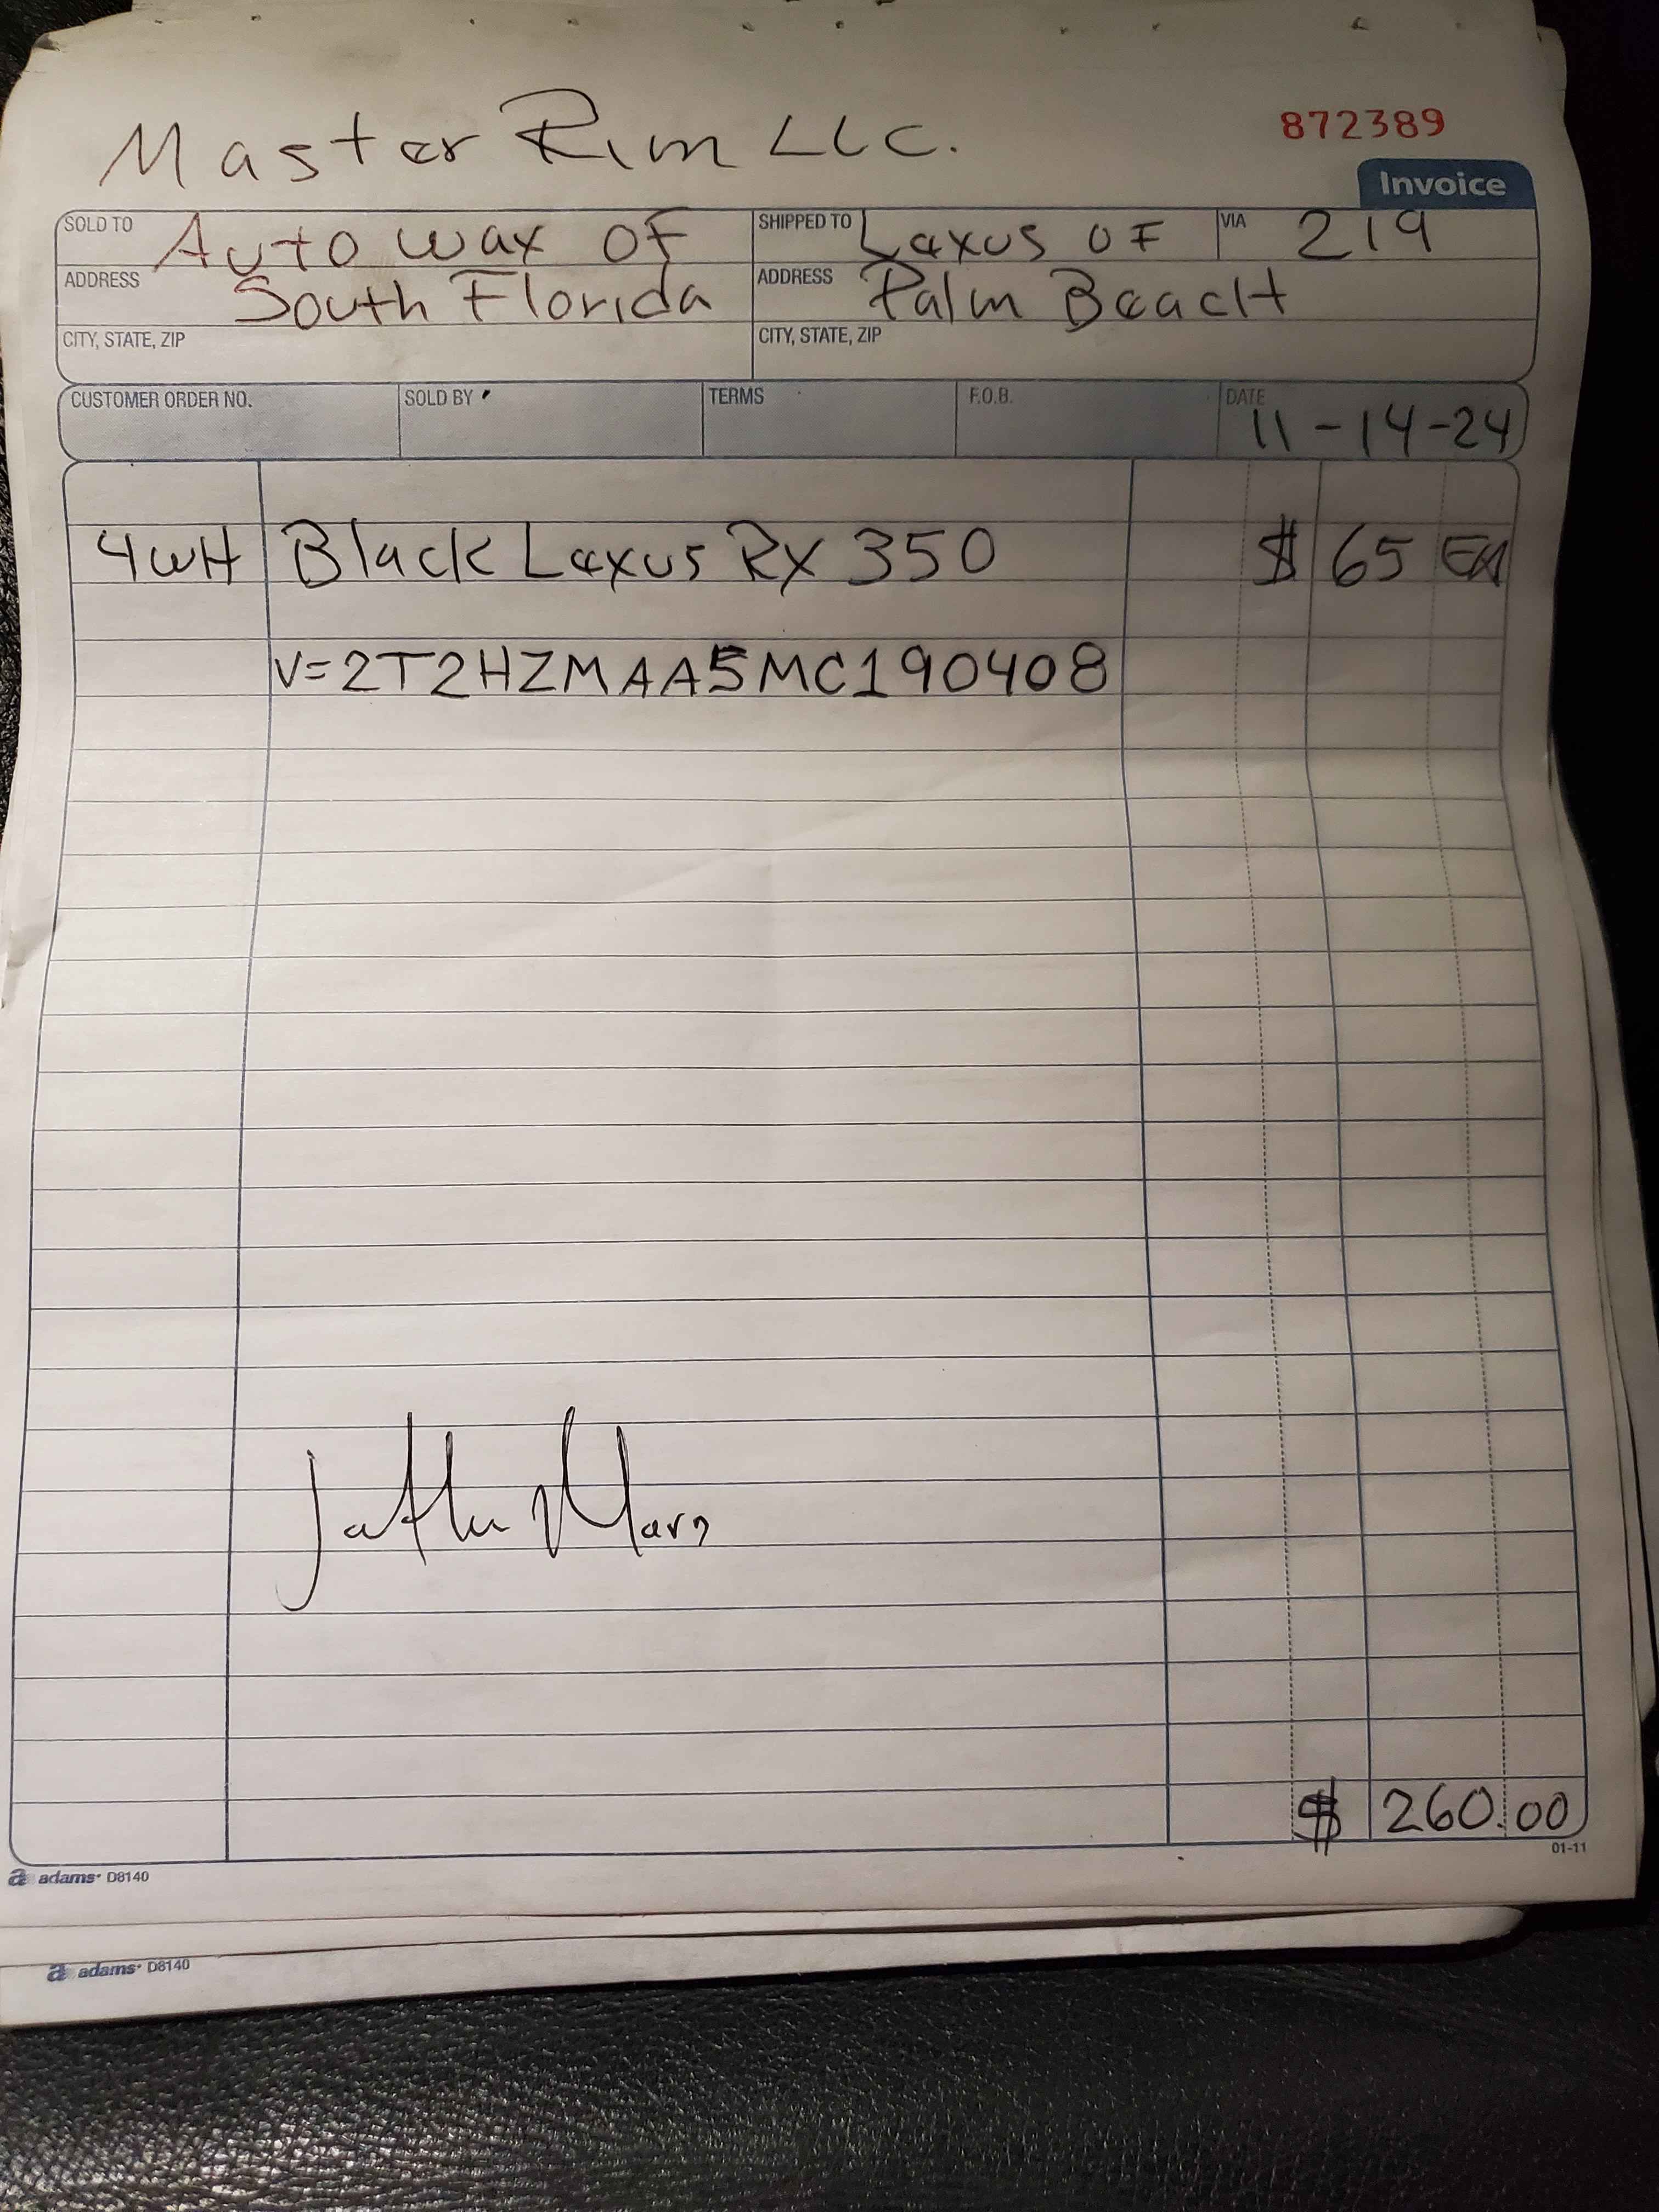 Master Rim LLC.
872389
Invoice
SOLD TO Auto wax OF
SHIPPED TO Lexus OF
VIA 219
ADDRESS South Florida
ADDRESS Palm Beach
CITY, STATE, ZIP
CITY, STATE, ZIP
CUSTOMER ORDER NO. SOLD BY TERMS F.O.B. DATE 11-14-24
4 WH Black Lexus RX 350 $ 65 EA
V=2T2HZMAA5MC190408
$ 260.00
01-11
a adams D8140
a adams D8140